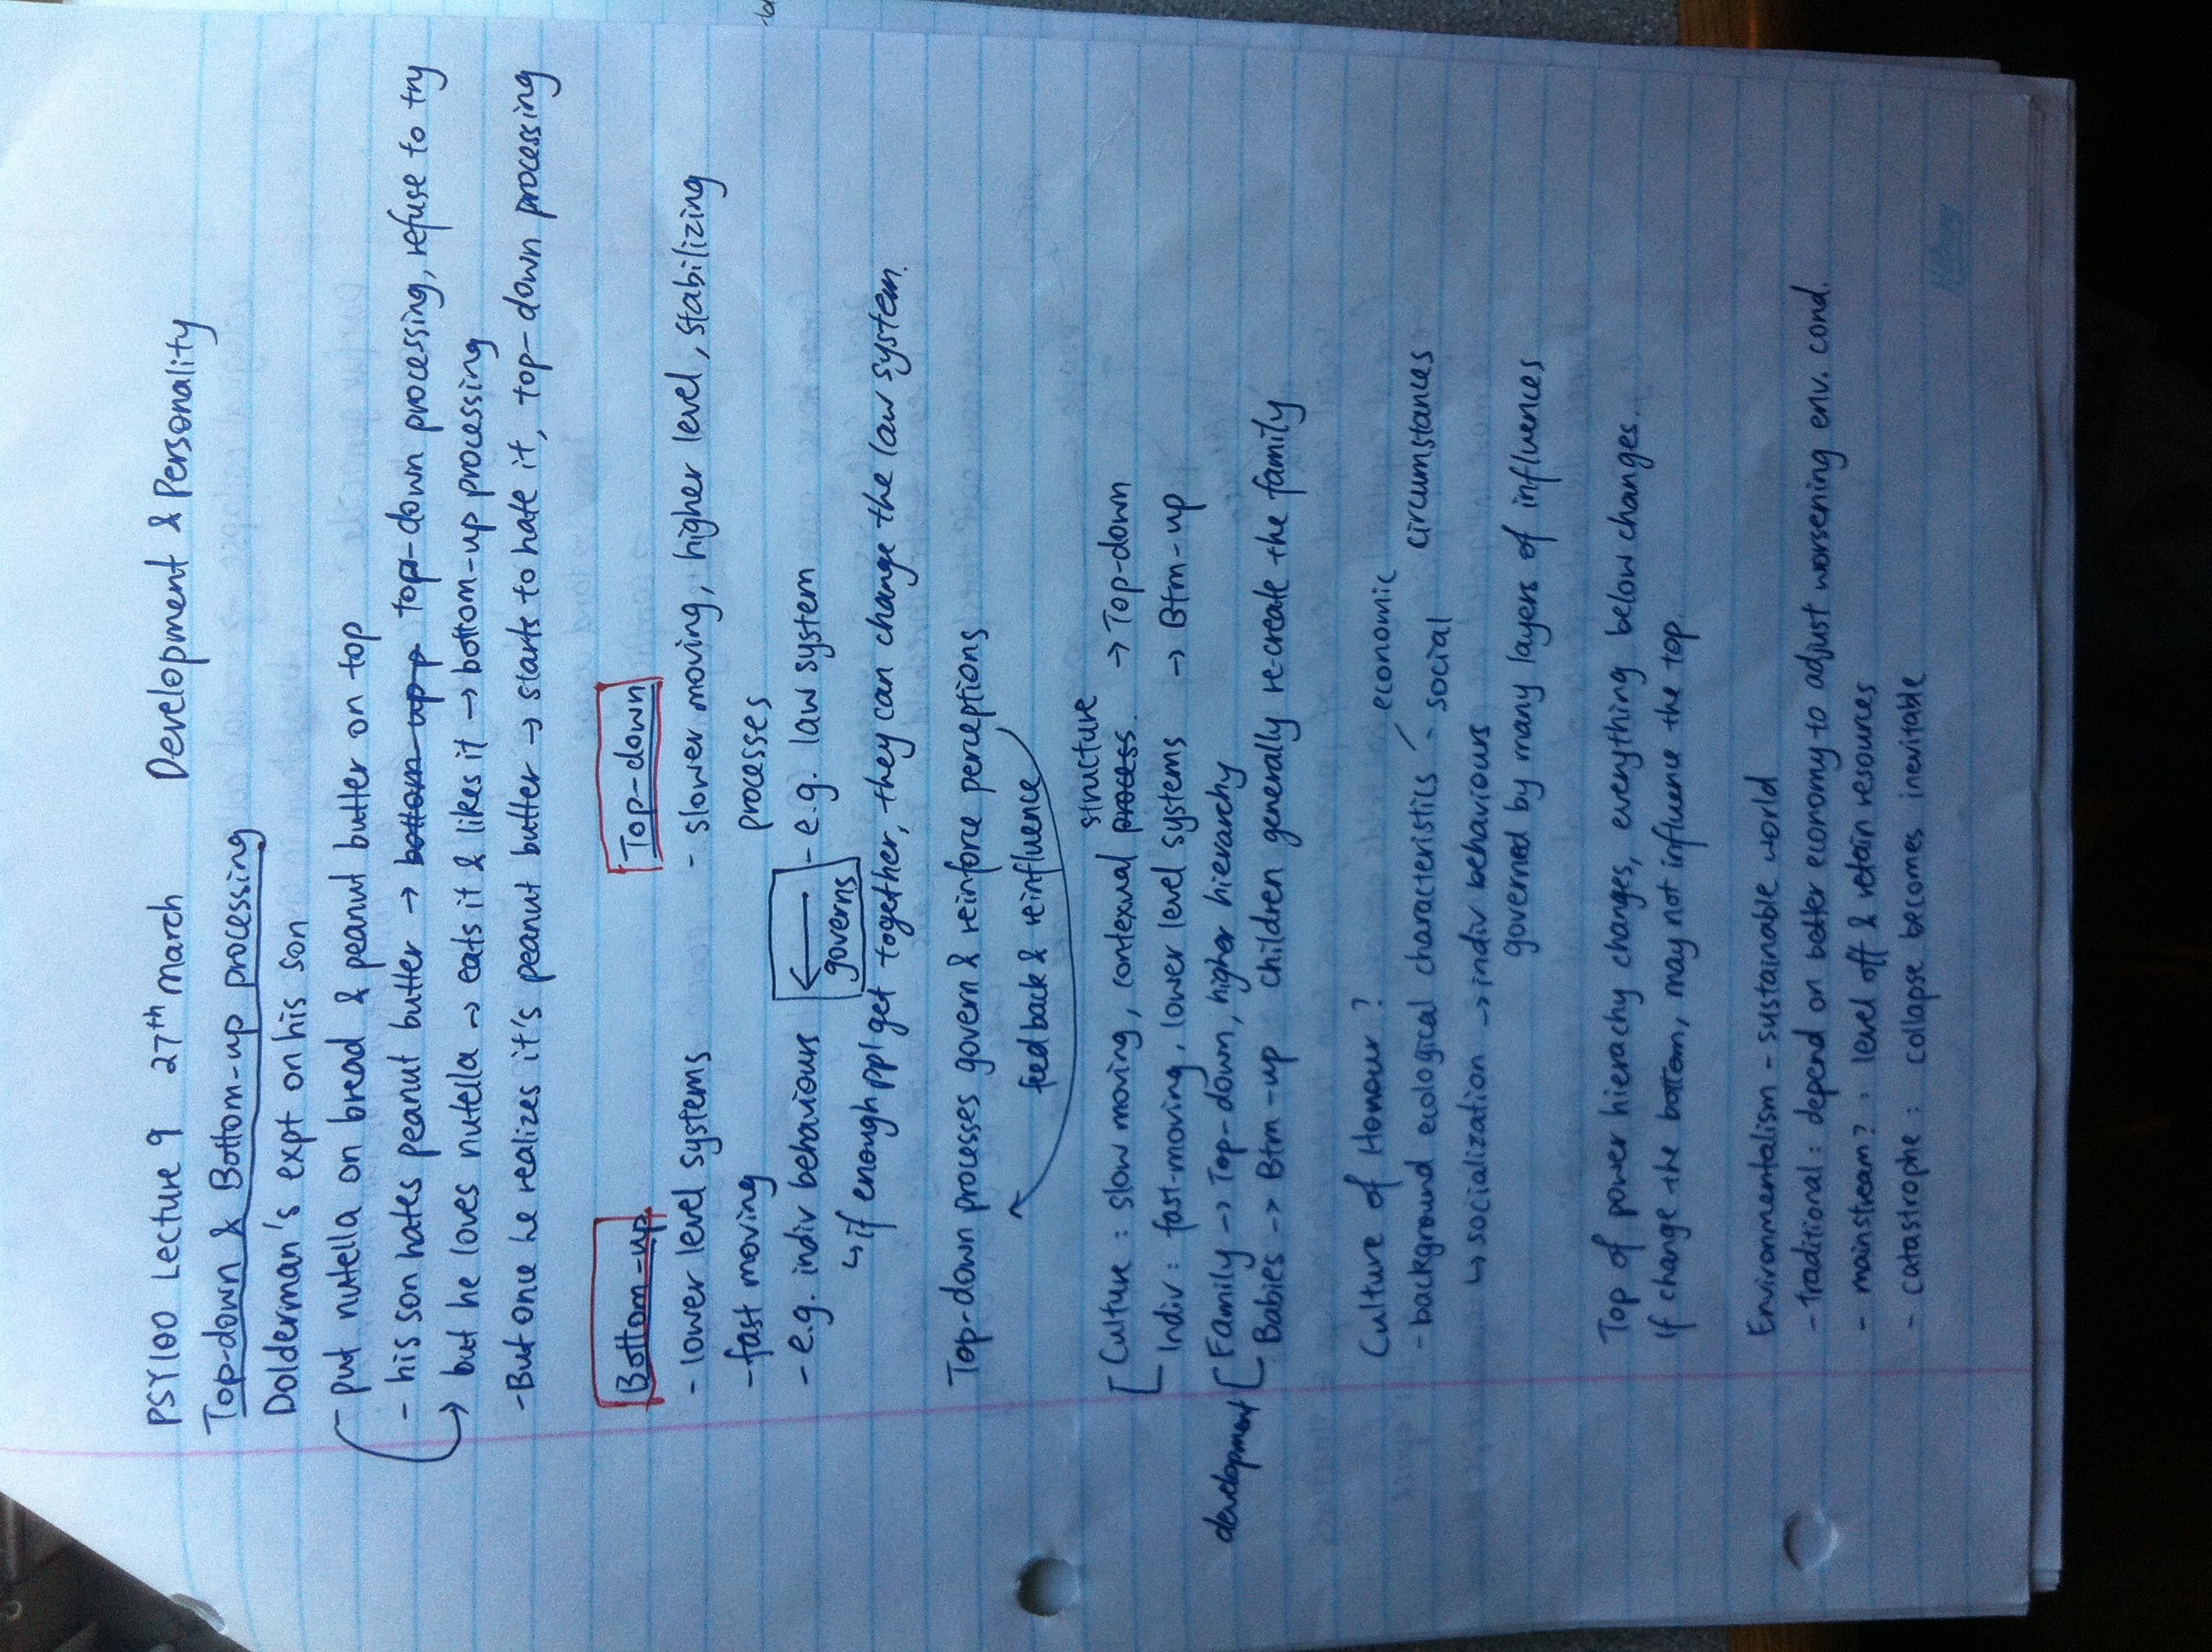 PSY100 Lecture 9 27th March Development & Personality
Top-down & Bottom-up processing
Dolderman's expt on his son
- put nutella on bread & peanut butter on top
- his son hates peanut butter → bottom-up top-down processing, refuse to try
↳ but he loves nutella → eats it & likes it → bottom-up processing
- But one he realizes it's peanut butter → starts to hate it, top-down processing
Bottom-up Top-down
- lower level systems - slower moving, higher level, stabilizing
- fast moving processes
- e.g. indiv behaviours ← governs - e.g. law system
↳ if enough ppl get together, they can change the law system.
Top-down processes govern & reinforce perceptions
feedback & reinfluence
structure
Culture : slow moving, contexual process. → Top-down
Indiv : fast-moving, lower level systems → Btm-up
development
Family → Top-down, higher hierarchy
Babies → Btm-up children generally re-create the family
Culture of Honour ?
economic
- background ecological characteristics - social circumstances
↳ socialization → indiv behaviours
governed by many layers of influences
Top of power hierachy changes, everything below changes..
If change the bottom, may not influence the top.
Environmentalism - sustainable world
- traditional : depend on better economy to adjust worsening env. cond.
- mainstream? : level off & retain resources
- catastrophe : collapse becomes inevitable